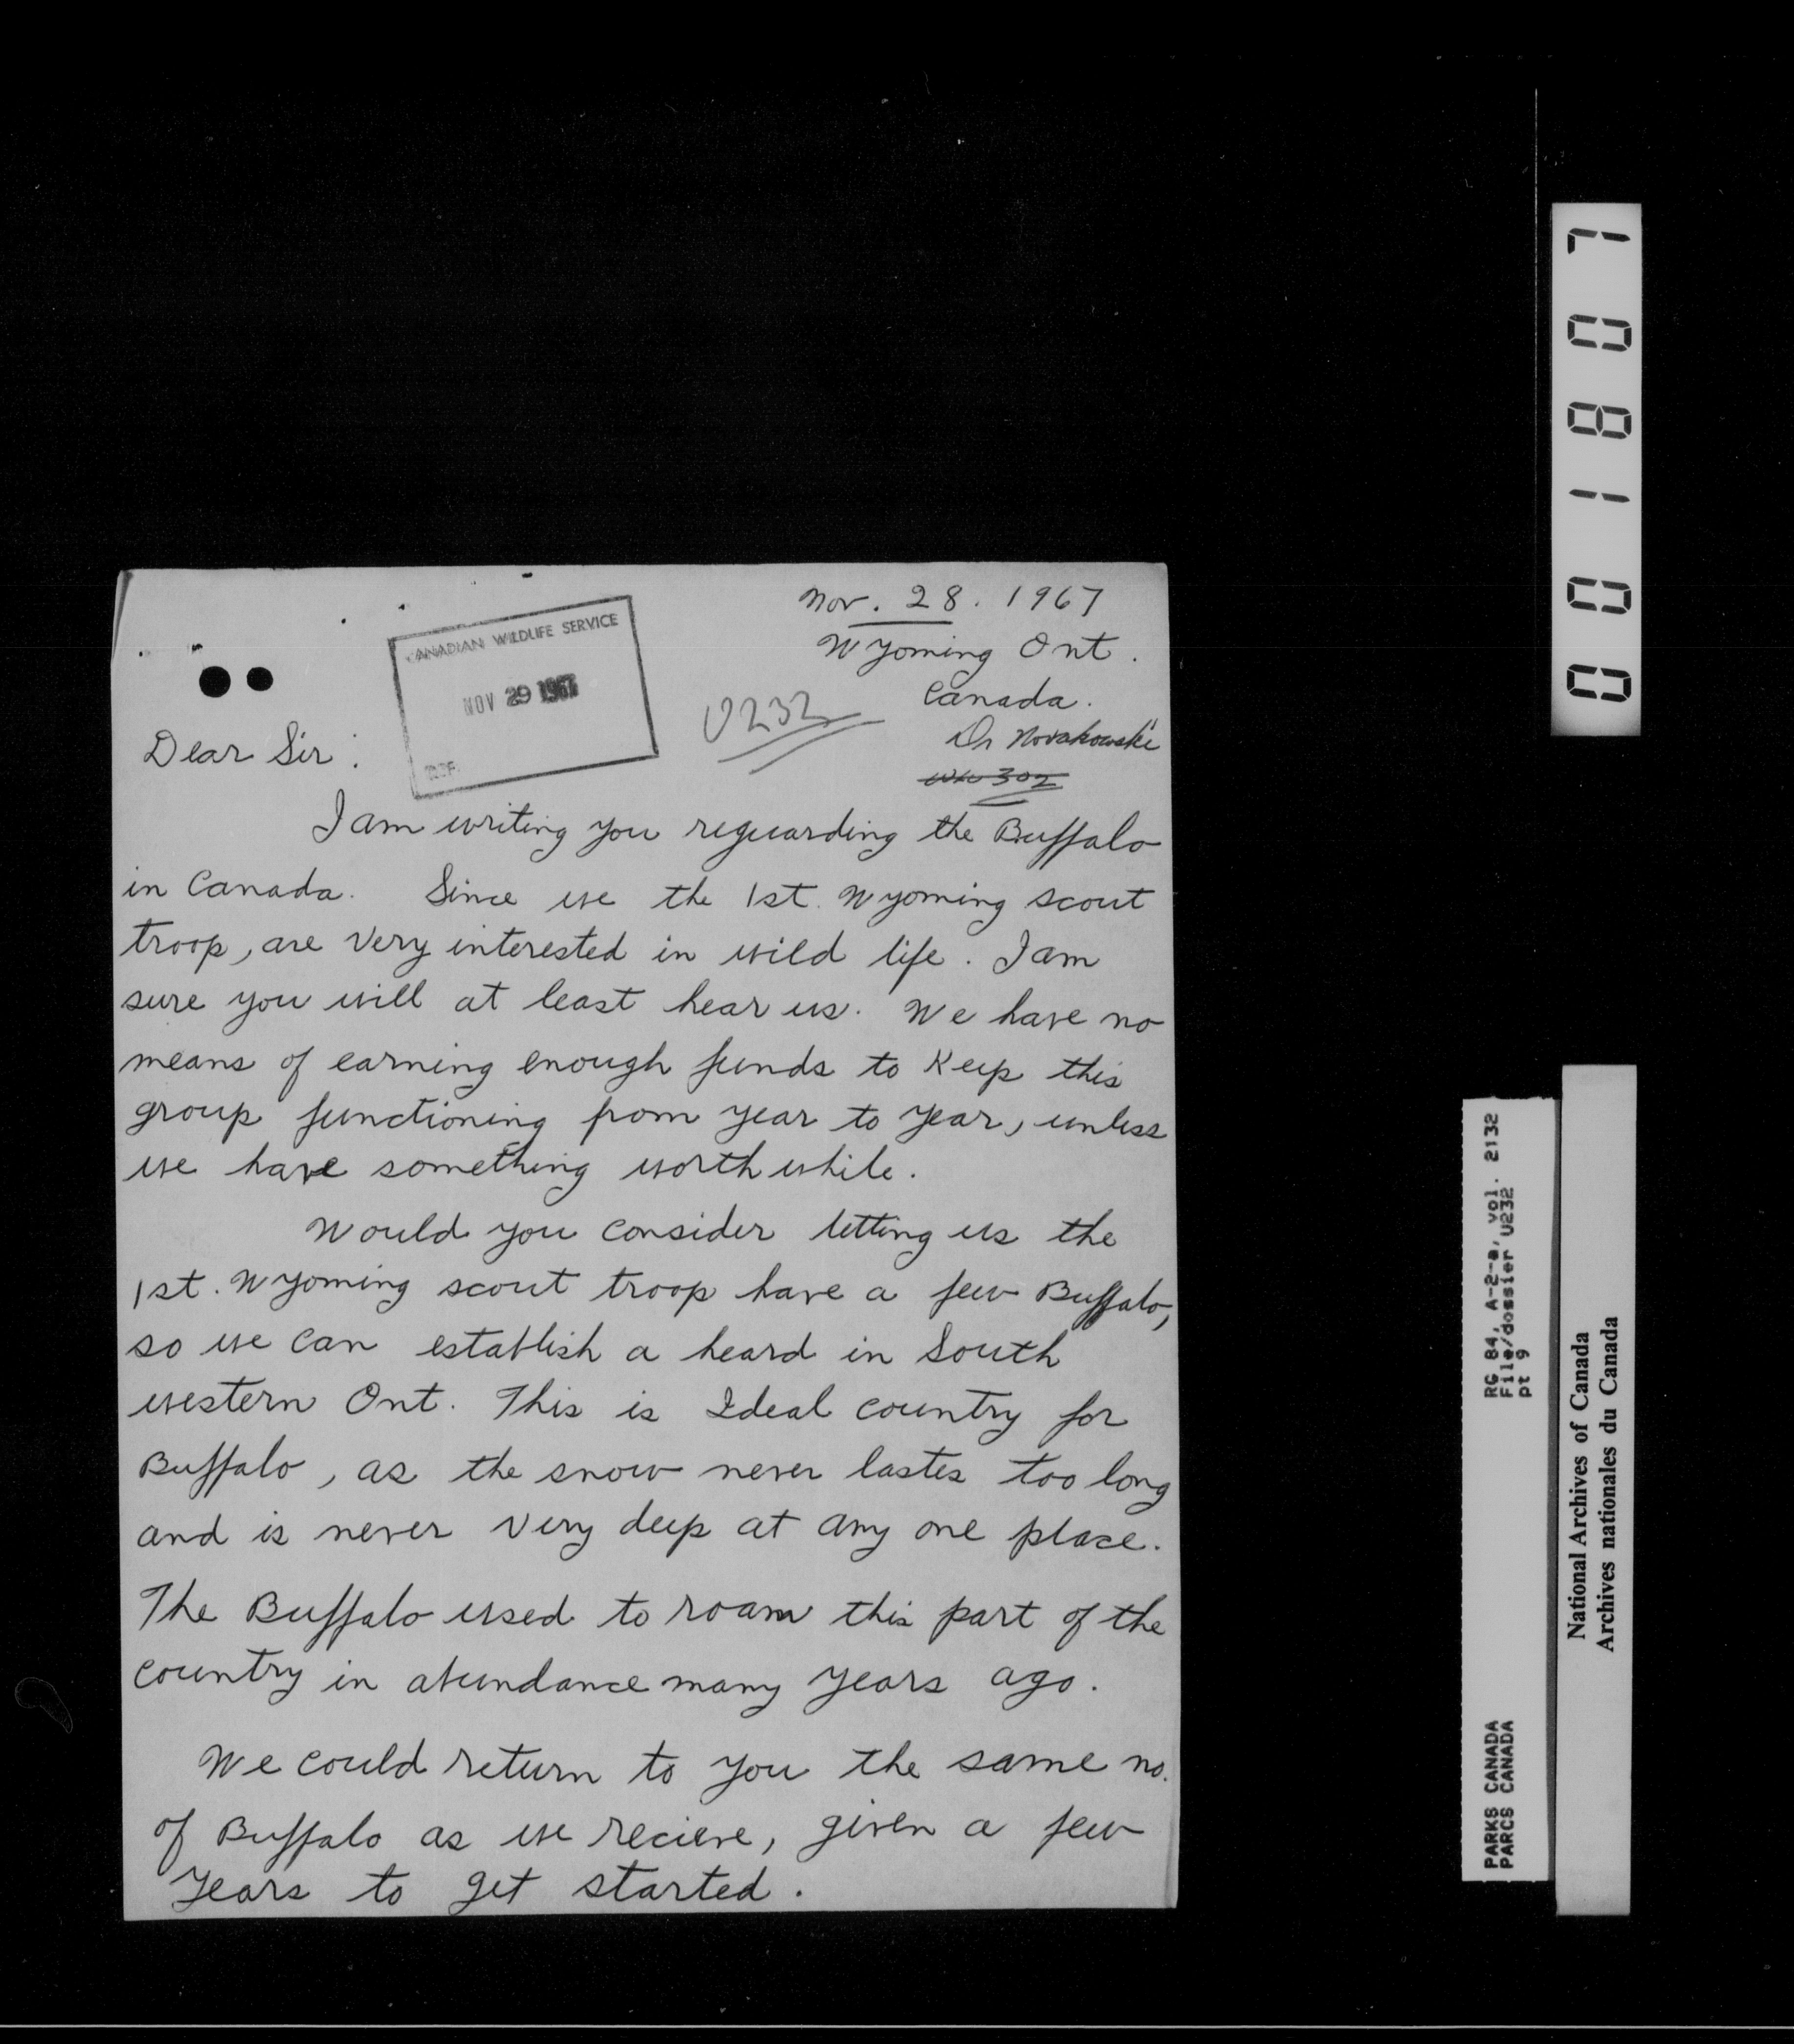 Nov. 28. 1967
Wyoming Ont.
Canada.
CANADIAN WILDLIFE SERVICE
NOV 29 1967
U232
Dr Novakowski
302
Dear Sir:
I am writing you reguarding the Buffalo
in Canada. Since we the 1st. Wyoming scout
troop, are very interested in wild life. I am
sure you will at least hear us. We have no
means of earning enough funds to keep this
group functioning from year to year, unless
we have something worth while.
Would you consider letting us the
1st. Wyoming scout troop have a few Buffalo,
so we can establish a heard in South
western Ont. This is Ideal country for
Buffalo, as the snow never lastes too long
and is never very deep at any one place.
The Buffalo used to roam this part of the
country in abundance many years ago.
We could return to you the same no.
of Buffalo as we recieve, given a few
years to get started.
001807
RG 84, A-2-a, vol. 2132
File/dossier U232
pt 9
PARKS CANADA
PARCS CANADA
National Archives of Canada
Archives nationales du Canada